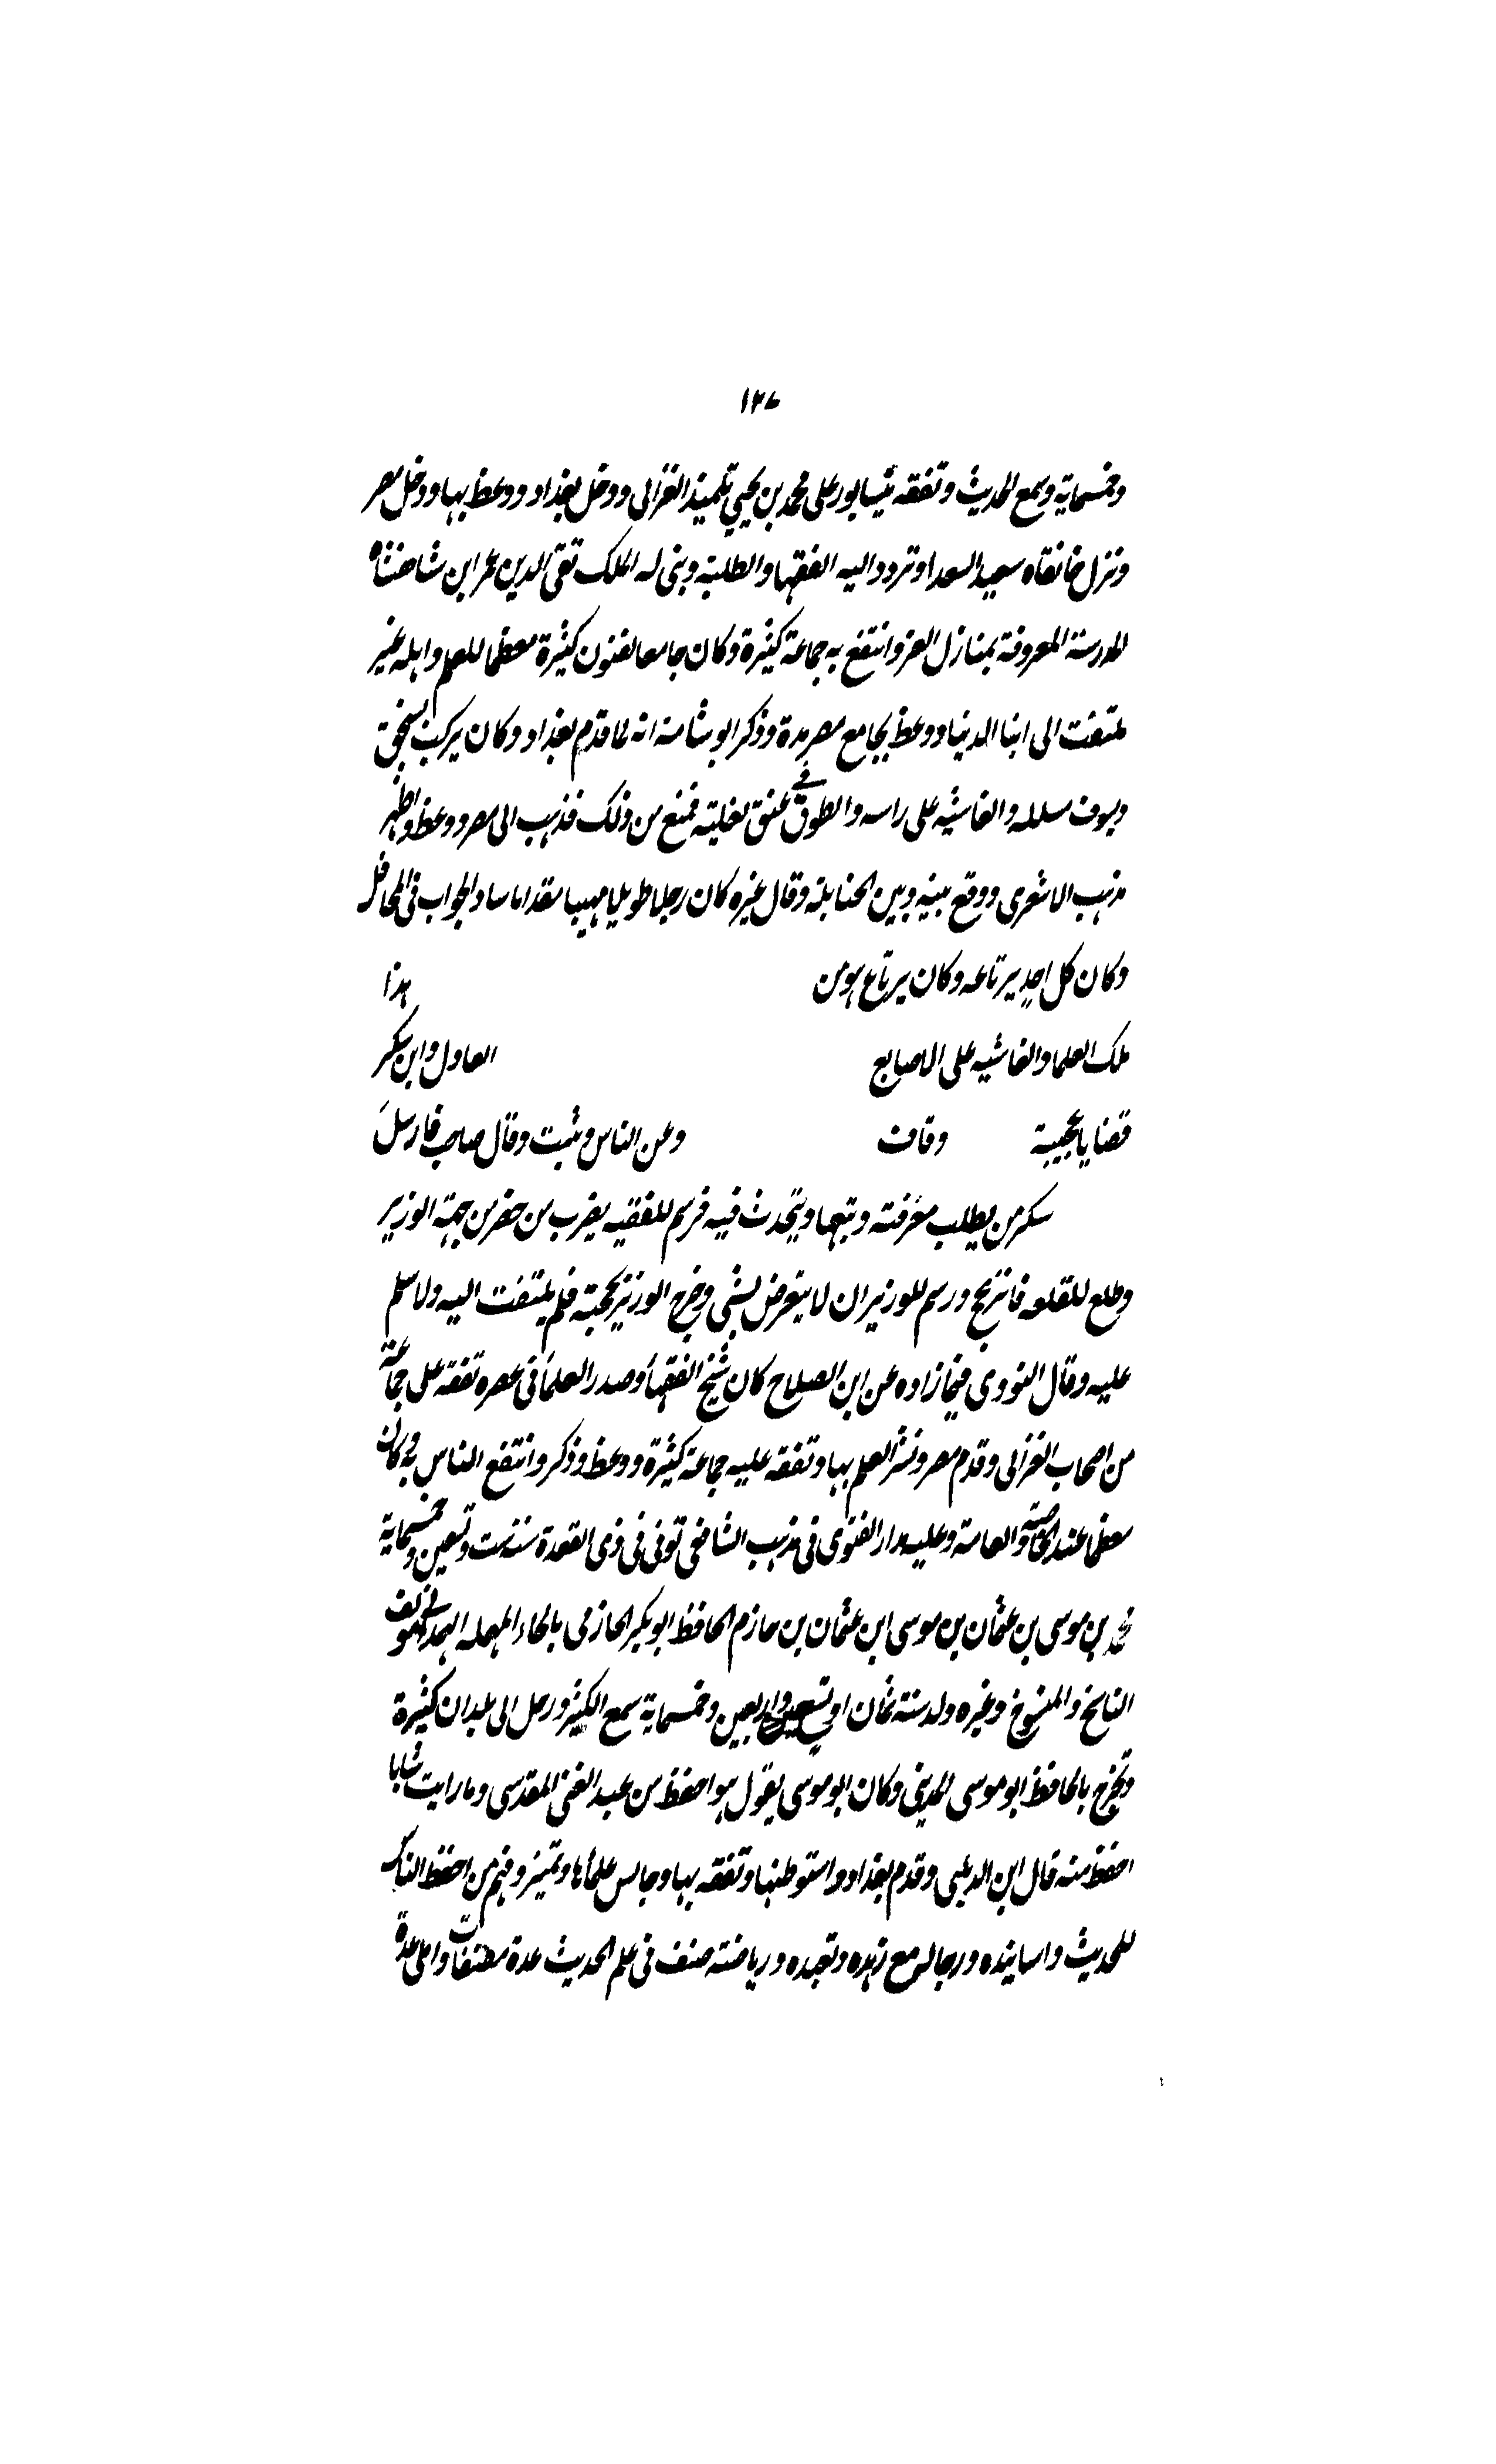 ١٢٧
وخمسماية وسمع الحديث وتفقه بنيسابور على محمد بن يحيي تلميذ الغزالى ودخل بغداد ووعظ بها ودخل مصر
ونزل خانقاه سعيد السعدا وتردد اليه الفقها والطلبة وبنى له الملك تقى الدين عمر ابن شاهنشاه
المدرسة المعروفة بمنازل العز وانتفع به جماعة كثيرة وكان جامعا لفنون كثيرة معظما للعلم واهله غير
ملتفت الى ابنا الدنيا ووعظ بجامع مصر مدة وذكر ابو شامة انه لما قدم بغداد وكان يركب بسنجق
وسيوف مسلله والغاشيه على راسه والطوق فى عنق بغلته فمنع من ذلك فذهب الى مصر ووعظ واظهر
مذهب الاشعرى ووقع بينه وبين الحنابلة وقال غيره كان رجلا طويلا مهيبا مقداما ساد الجواب فى المحافل
وكان كل احد يرتاعه وكان يرتاع هو من هذا
ملك العلما والغاشيه على الاصابع العادل وابن سكر
قضايا عجيبة وقات وعن الناس وثبت وقال صاحب فارسل
سكر من يطلب معرفته وتبها ويتحدث فيه فرسم للفقيه يضرب من حضر من جهة الوزير
وطلع للقلعه فانزبح ورسم للوزير ان لا يتعرض بشى وخرج الوزير بحجبته فلم يلتفت اليه ولا سلم
عليه وقال النووى فيما زاده عن ابن الصلاح كان شيخ الفقهاء وصدر العلماء فى عصره تفقه على جماعة
من اصحاب الغزالى وقدم مصر ونشر العلم بها وتفقه عليه جماعة كثيرة ووعظ وذكر وانتفع الناس به وكان
معظما عند الخاصة والعامة وعليه مدار الفتوى فى مذهب الشافعى توفى فى ذى القعدة سنة ست وتسعين وخمسماية
محمد بن موسى بن عثمان بن موسى ابن عثمان بن حازم الحافظ ابو بكر الحازمى بالحاء المهمله الهمدانى مؤلف
الناسخ والمنسوخ وغيره ولد سنة ثمان او تسع واربعين وخمسماية سمع الكثير ورحل الى بلدان كثيرة
وتخرج بالحافظ ابو موسى المدينى وكان ابو موسى يقول هو احفظ من عبد الغنى المقدسى وما رايت شابا
احفظ منه قال ابن الدبيثى وقدم بغداد واستوطنها وتفقه بها وجالس علماءها وتميز وفهم من احفظ الناس
للحديث واسانيده ورجاله مع زهده وتعبده ورياضته صنف فى علم الحديث عدة مصنفات واملى عدة